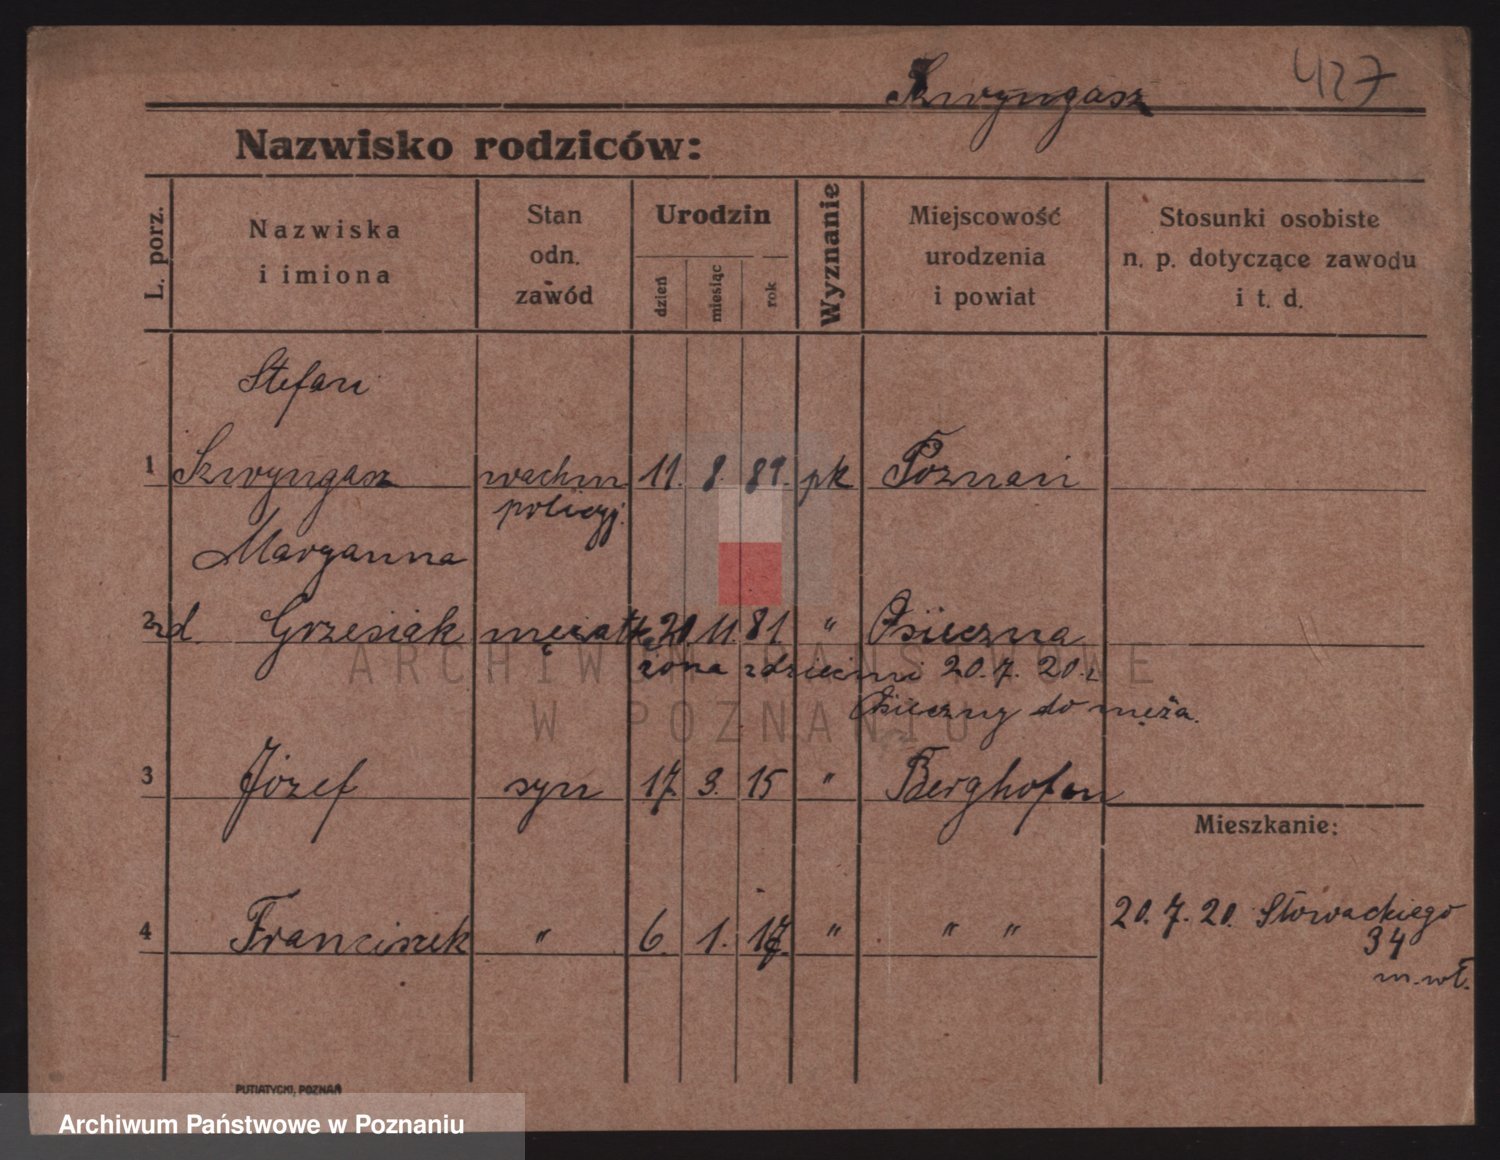 Szwyngasz
427
Nazwisko rodziców:
L. porz.
Nazwiska
i imiona
Stan
odn.
zawód
Urodzin
dzień
miesiąc
rok
Wyznanie
Miejscowość
urodzenia
i powiat
Stosunki osobiste
n. p. dotyczące zawodu
i t. d.
Stefan
1 Szwyngasz wachm 11. 8. 81. pk Poznań
policyj.
Maryanna
2 zd. Grzesiak mężatka 20 11. 81. " Osieczna
żona z dziećmi 20. 7. 20. z
Osieczny do męża.
3 Józef syn 17. 3. 15 " Berghofen
Mieszkanie:
4 Franciszek " 6. 1. 17. " " "
20. 7. 20. Słowackiego
34
m. wł.
PUTIATYCKI, POZNAŃ
ARCHIWUM PAŃSTWOWE
W POZNANIU
Archiwum Państwowe w Poznaniu